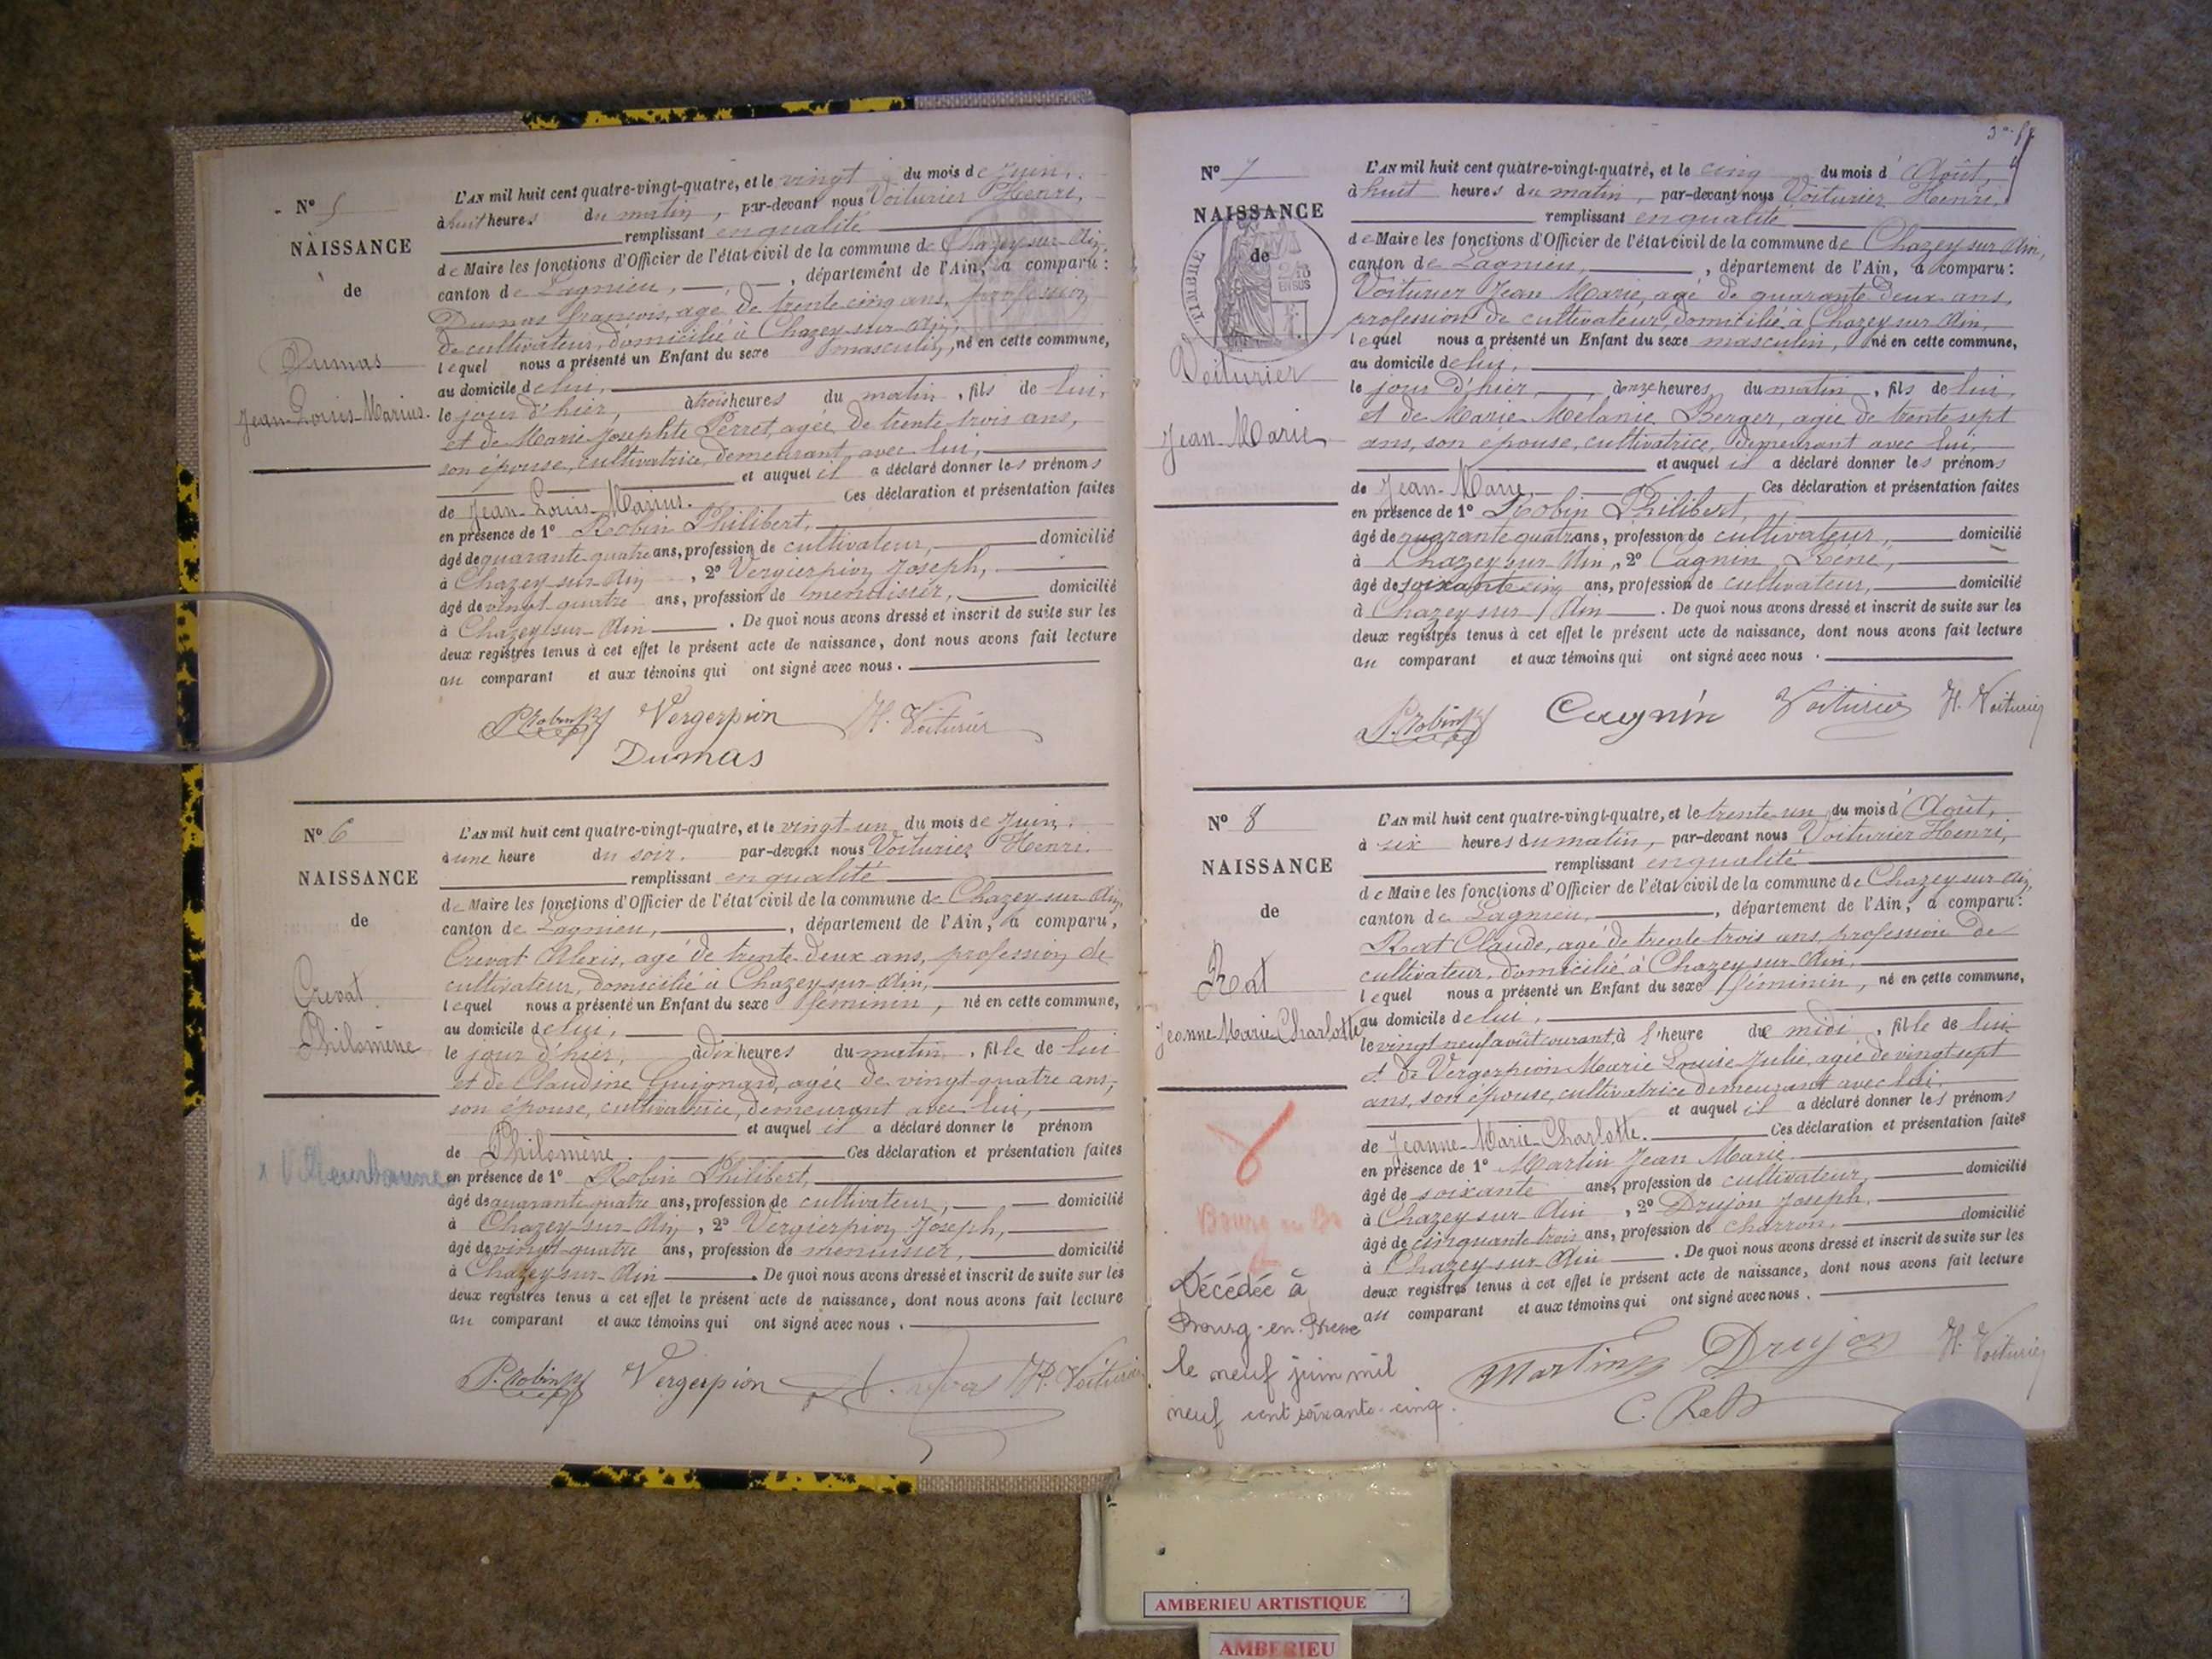 N° 5
NAISSANCE
de
Dumas
Jean-Louis-Marius.
L'AN mil huit cent quatre-vingt-quatre, et le vingt du mois de Juin,
à huit heures du matin, par-devant nous Voiturier Henri,
remplissant en qualité
de Maire les fonctions d'Officier de l'état civil de la commune de Chazey-sur-Ain,
canton de Lagnieu, département de l'Ain, a comparu :
Dumas françois, agé de trente cinq ans, profession
de cultivateur, domicilié à Chazey-sur-Ain,
lequel nous a présenté un Enfant du sexe masculin, né en cette commune,
au domicile de lui,
le jour d'hier, à trois heures du matin, fils de lui,
et de Marie Josephte Perret, agée de trente-trois ans,
son épouse, cultivatrice, demeurant avec lui,
et auquel il a déclaré donner les prénoms
de Jean-Louis-Marius. Ces déclaration et présentation faites
en présence de 1° Robin Philibert,
âgé de quarante-quatre ans, profession de cultivateur, domicilié
à Chazey-sur-Ain, 2° Vergierpion Joseph,
âgé de vingt-quatre ans, profession de menuisier, domicilié
à Chazey-sur-Ain. De quoi nous avons dressé et inscrit de suite sur les
deux registres tenus à cet effet le présent acte de naissance, dont nous avons fait lecture
au comparant et aux témoins qui ont signé avec nous.
P. Robin Vergerpion H. Voiturier
Dumas
N° 6
NAISSANCE
de
Crevat
Philomène
x Villeurbanne
L'AN mil huit cent quatre-vingt-quatre, et le vingt-un du mois de Juin,
à une heure du soir, par-devant nous Voiturier Henri
remplissant en qualité
de Maire les fonctions d'Officier de l'état civil de la commune de Chazey-sur-Ain,
canton de Lagnieu, département de l'Ain, a comparu,
Crevat Alexis, agé de trente-deux ans, profession de
cultivateur, domicilié à Chazey-sur-Ain,
lequel nous a présenté un Enfant du sexe féminin, né en cette commune,
au domicile de lui,
le jour d'hier, à dix heures du matin, fille de lui
et de Claudine Guignard, agée de vingt-quatre ans,
son épouse, cultivatrice, demeurant avec lui,
et auquel il a déclaré donner le prénom
de Philomène. Ces déclaration et présentation faites
en présence de 1° Robin Philibert,
âgé de quarante-quatre ans, profession de cultivateur, domicilié
à Chazey-sur-Ain, 2° Vergierpion Joseph,
âgé de vingt-quatre ans, profession de menuisier, domicilié
à Chazey-sur-Ain. De quoi nous avons dressé et inscrit de suite sur les
deux registres tenus à cet effet le présent acte de naissance, dont nous avons fait lecture
au comparant et aux témoins qui ont signé avec nous.
P. Robin Vergerpion H. Voiturier
N° 7
NAISSANCE
de
TIMBRE
Voiturier
Jean-Marie
L'AN mil huit cent quatre-vingt-quatre, et le cinq du mois d'Août,
à huit heures du matin, par-devant nous Voiturier Henri,
remplissant en qualité
de Maire les fonctions d'Officier de l'état civil de la commune de Chazey sur Ain,
canton de Lagnieu, département de l'Ain, a comparu :
Voiturier Jean Marie, agé de quarante deux ans,
profession de cultivateur, domicilié à Chazey sur Ain,
lequel nous a présenté un Enfant du sexe masculin, né en cette commune,
au domicile de lui,
le jour d'hier, à onze heures du matin, fils de lui,
et de Marie Mélanie Berger, agée de trente sept
ans, son épouse, cultivatrice, demeurant avec lui,
et auquel il a déclaré donner les prénoms
de Jean-Marie Ces déclaration et présentation faites
en présence de 1° Robin Philibert,
âgé de quarante quatre ans, profession de cultivateur, domicilié
à Chazey sur Ain, 2° Cagnin Réné,
âgé de soixante cinq ans, profession de cultivateur, domicilié
à Chazey sur Ain. De quoi nous avons dressé et inscrit de suite sur les
deux registres tenus à cet effet le présent acte de naissance, dont nous avons fait lecture
au comparant et aux témoins qui ont signé avec nous.
P. Robin Cagnin Voiturier H. Voiturier
N° 8
NAISSANCE
de
Rat
Jeanne Marie Charlotte
Bourg en Br
Décédée à
Bourg-en-Bresse
le neuf juin mil
neuf cent soixante-cinq.
L'AN mil huit cent quatre-vingt-quatre, et le trente-un du mois d'Août,
à six heures du matin, par-devant nous Voiturier Henri,
remplissant en qualité
de Maire les fonctions d'Officier de l'état civil de la commune de Chazey-sur-Ain,
canton de Lagnieu, département de l'Ain, a comparu :
Rat Claude, agé de trente trois ans, profession de
cultivateur, domicilié à Chazey-sur-Ain,
lequel nous a présenté un Enfant du sexe féminin, né en cette commune,
au domicile de lui,
le vingt neuf août courant, à l'heure de midi, fille de lui
et de Vergerpion Marie Louise Julie, agée de vingt-sept
ans, son épouse, cultivatrice demeurant avec lui.
et auquel il a déclaré donner les prénoms
de Jeanne-Marie-Charlotte. Ces déclaration et présentation faites
en présence de 1° Martin Jean Marie
âgé de soixante ans, profession de cultivateur, domicilié
à Chazey sur Ain, 2° Drujon Joseph,
âgé de cinquante trois ans, profession de charron, domicilié
à Chazey sur Ain. De quoi nous avons dressé et inscrit de suite sur les
deux registres tenus à cet effet le présent acte de naissance, dont nous avons fait lecture
au comparant et aux témoins qui ont signé avec nous.
Martin Drujon H. Voiturier
C. Rat
AMBERIEU ARTISTIQUE
AMBERIEU